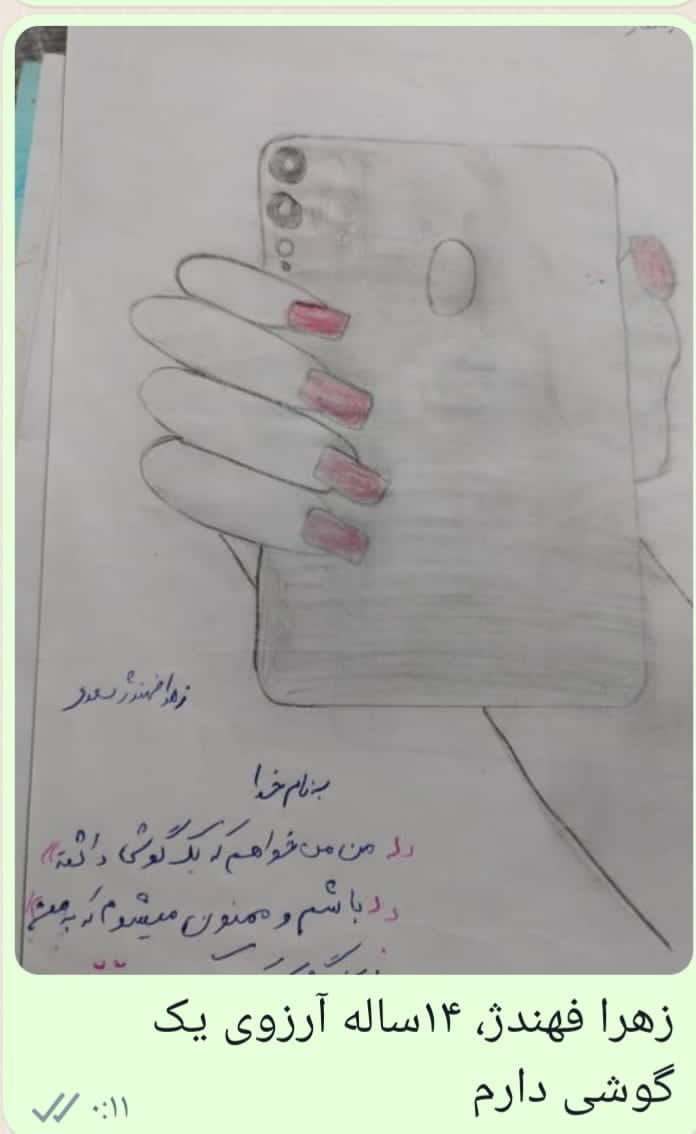 زهرا فهندژ سعدی
بنام خدا
من می خواهم که یک گوشی داشته
باشم و ممنون میشوم که به من
زهرا فهندژ، ۱۴ساله آرزوی یک
گوشی دارم
۰:۱۱